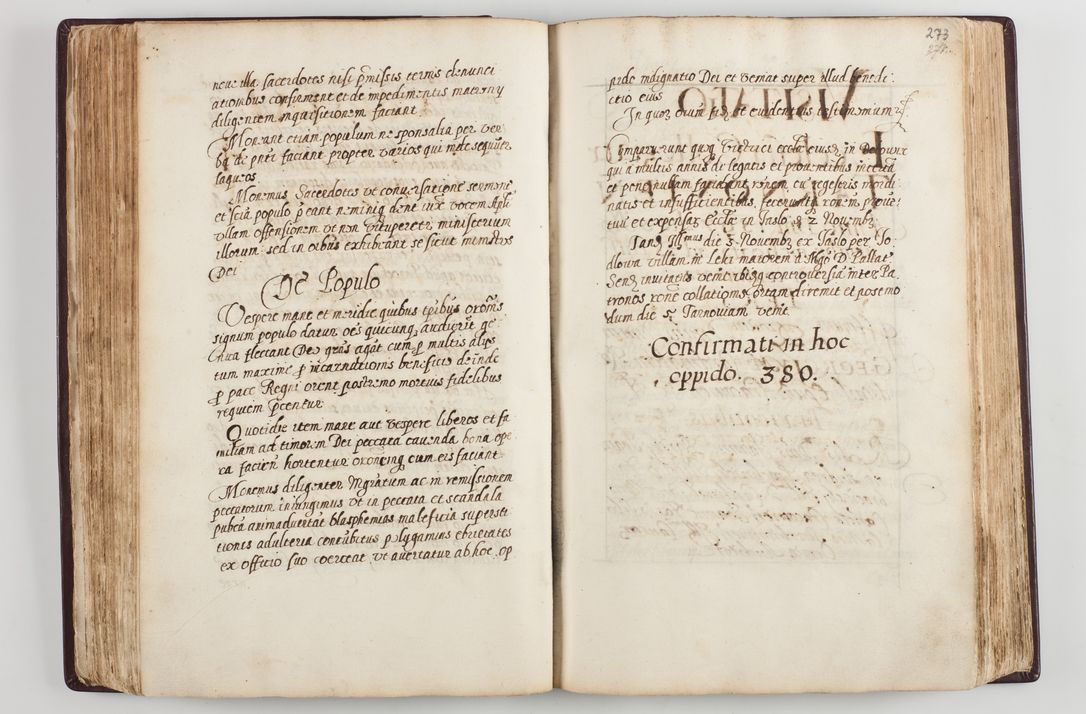 neve illa sacerdotes nisi p̃missis ternis denunci
ationibus confirment et de impedimentis matrimŷ
diligentem inquisitionem faciant.
Moneant etiam populum ne sponsalia per ver
ba de pnti faciant propter varios qui inde sequũtr
laqueos
Monemus Sacerdotes ut conversatione sermone
et sciã populo p̃eant neminiq dent iux vocem Apli
ullam offensionem ut non vituperetr ministerium
illorum: sed in oibus exhibeant se sicut ministros
Dei
De Populo
Vespere mane et meridie quibus tpibus oroñis
signum populo datur oẽs quicunq, audierit ge
nua flectant Deo grãs agãt cum p multis alijs
tum maxime p incarnationis beneficio deinde
p pace Regni orent postremo mortuis fidelibus
requiem p̃centur
Quotidie item mane aut vespere liberos et fa
miliam ad timorem Dei peccata cavenda bona ope
ra facien̄ hortentur oronẽq cum eis faciant
Monemus diligenter Mgratum ac in remissionem
peccatorum iniungimus ut in peccata et scandala
pubca animadvertat blasphemias maleficia supersti
tiones adulteria concubitus polygamias ebrietates
ex officio suo coerceat ut avertatur ab hoc op
273
pido indignatio Dei et veniat super illud benedi
ctio eius
In quoꝝ oium fidẽ et evidentius testimonium
Comparuerunt quoq Vitrici ecclæ eiusdẽ in
qui a multis annis de legatis et proventibus incerta
et pene nullam faciebant ronem cũ regestris inordi
natis et insufficientibus, fecerunt ronẽm proven
tuũ et expensaꝝ Ecclæ in Iaslo 2 Novembr
Illmus die 3 Novembꝝ ex Iaslo per Jo
dlowa villam in Leki maiorem a Mgco D Pallat
Senꝝ invitatus venit ibiq controversiã inter Pa
tronos rone collationis ortam diremit et postmo
dum die 5 Tarnoviam venit
Confirmati in hoc
oppido. 380.